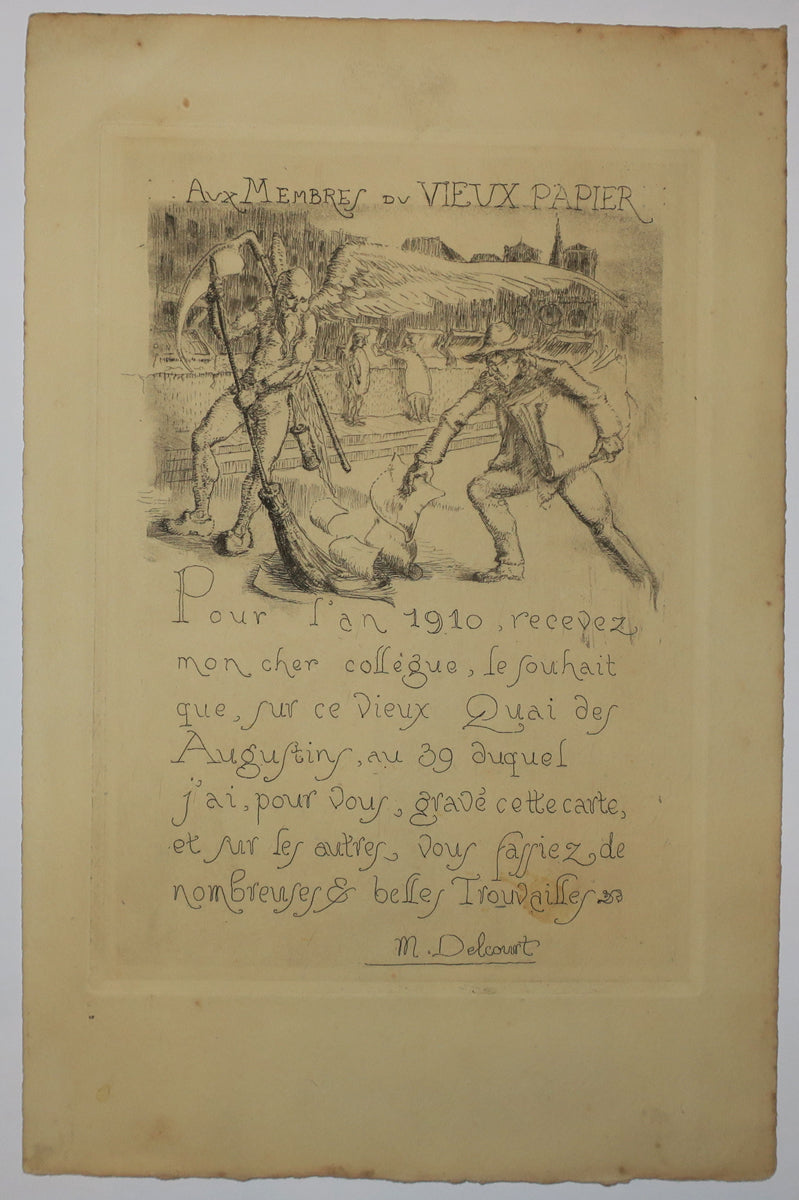 Aux Membres du VIEUX PAPIER
Pour l'an 1910, recevez,
mon cher collégue, le souhait
que, sur ce vieux Quai des
Augustins, au 39 duquel
j'ai, pour vous, gravé cette carte,
et sur les autres, vous fassiez de
nombreuses & belles Trouvailles
M. Delcourt